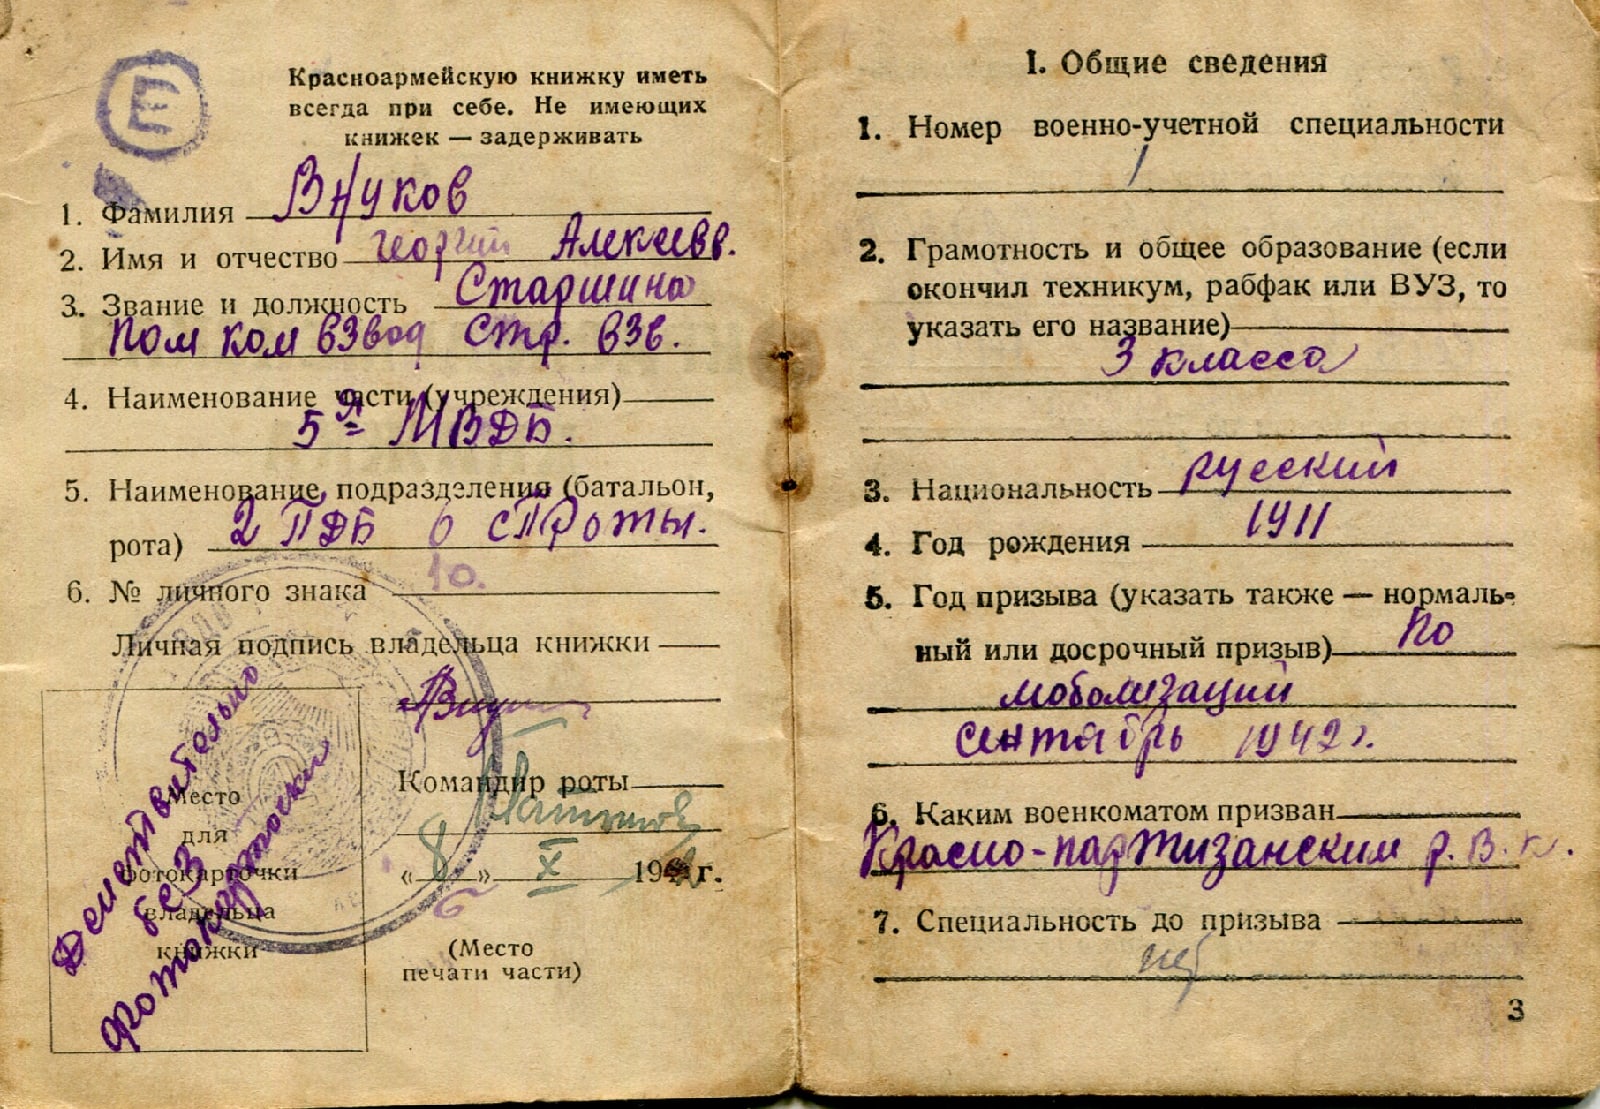 Е
Красноармейскую книжку иметь
всегда при себе. Не имеющих
книжек — задерживать
1. Фамилия Внуков
2. Имя и отчество Георгий Алексеев.
3. Звание и должность Старшина
пом ком взвод Стр. взв.
4. Наименование части (учреждения)
5я МВДБ.
5. Наименование подразделения (батальон,
2 ПДБ 6 стр роты.
рота)
10.
6. № личного знака
Личная подпись владельца книжки
Командир роты
«8» X 194 г.
(Место
печати части)
Место
для
фотокарточки
владельца
книжки
Деиствительно
без
фотокарточки
I. Общие сведения
1. Номер военно-учетной специальности
1
2. Грамотность и общее образование (если
окончил техникум, рабфак или ВУЗ, то
указать его название)
3 класса
3. Национальность русский
4. Год рождения 1911
5. Год призыва (указать также — нормаль-
ный или досрочный призыв) по
моболизаций
сентябрь 1942 г.
6. Каким военкоматом призван
Красно-партизанским р. В. к.
7. Специальность до призыва
3